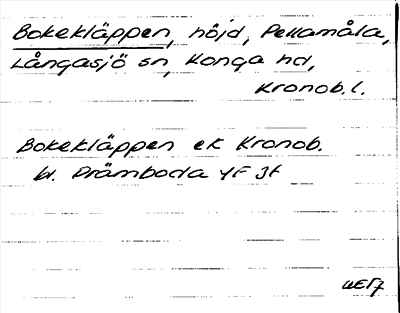 Bokekläppen, höjd, Pellamåla,
Långasjö sn, Konga hd,
Kronob. l.
Bokekläppen ek Kronob.
bl. Främboda 4F 3f